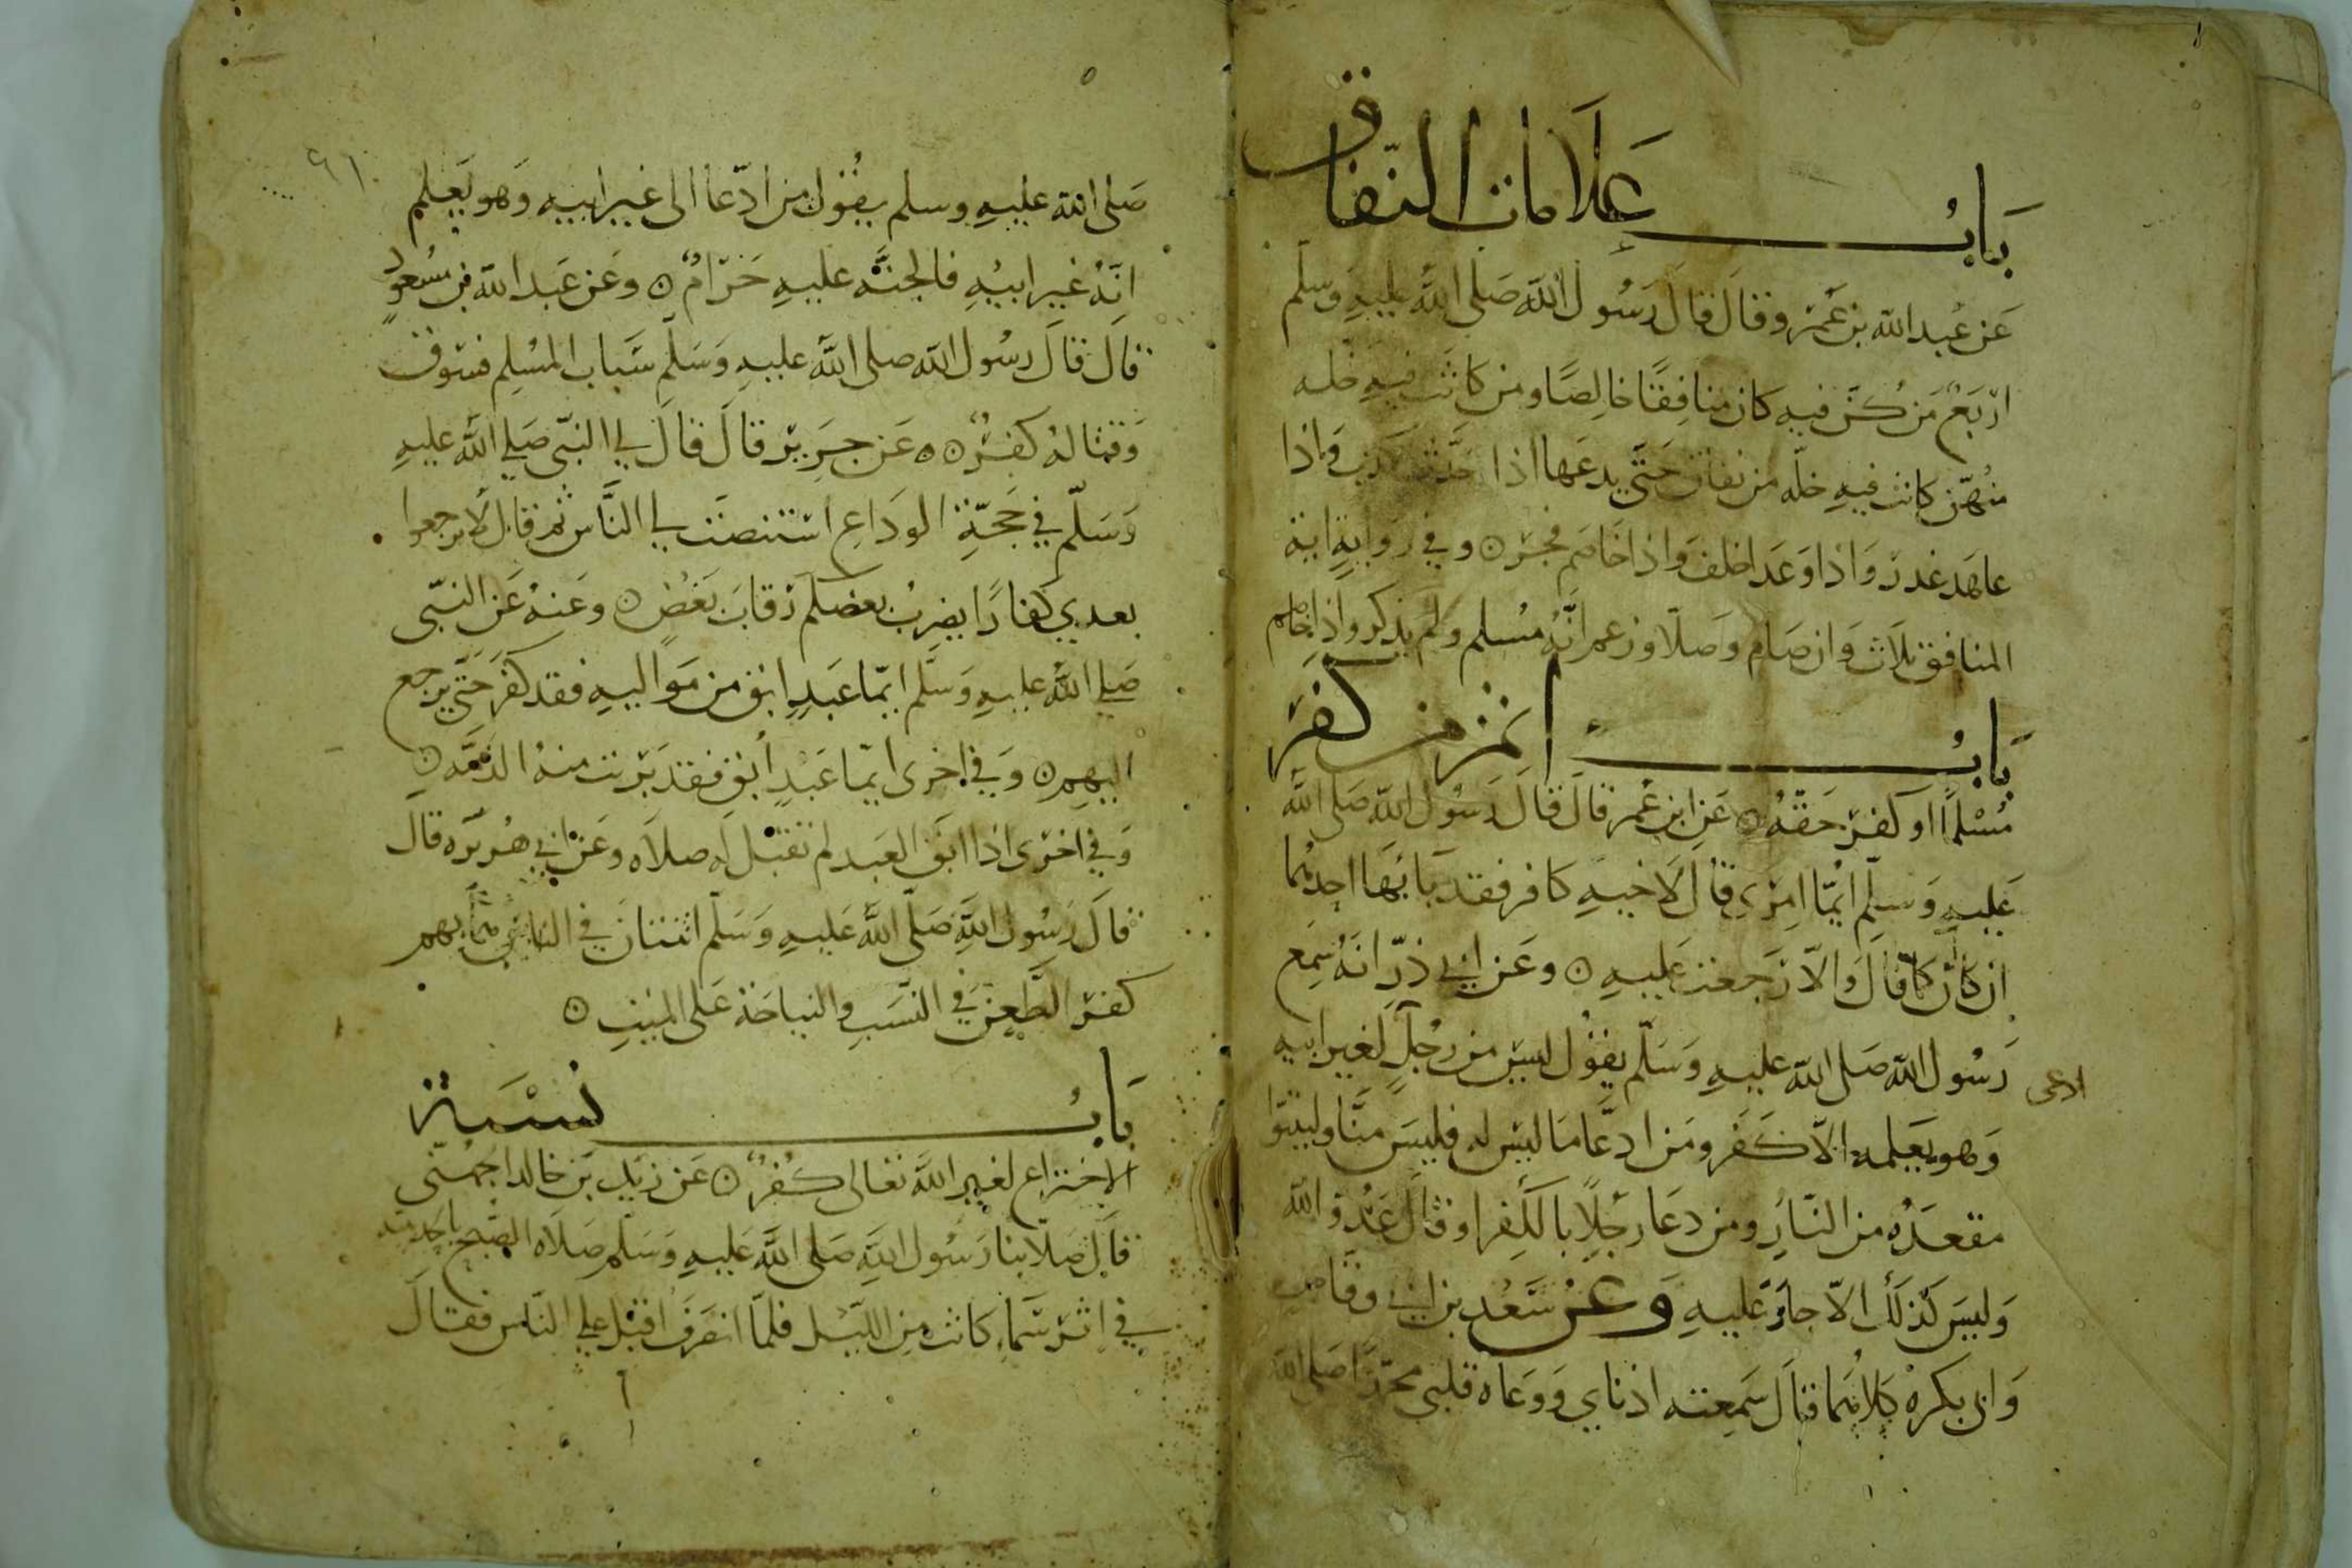 باب علامات النفاق
عَن عَبد الله بن عَمرو قال قال رَسُول الله صَلى الله عليه وَسَلم
اربَعٌ مَن كنّ فيه كان منافِقًا خالِصًا ومن كانَت فيهِ خله
منهّن كانت فيهِ خلّه من نفاق حَتّى يدعَها اذا حَدّث كذب وَاذا
عاهَد غدر وَاذا وَعَد اخلف وَاذا خاصَم فجر ٥ وفي رَوايةٍ اية
المنافق ثلاث وَان صَام وَصَلّا وزعم انّهُ مُسلم ولم يذكر واذا خاصم
بَابُ انّ من كفّر
مُسْلمًا او كفر حَقّهُ ٥ عَن ابن عُمر قالَ قالَ رَسُول الله صَلى الله
عَليهِ وَسلّم ايّما امرئ قال لاخيهِ كافر فقد بَا بهَا احدهُما
ان كانَ كمَا قالَ وَالّا رَجعت عَليهِ ٥ وعَن ابي ذرّ انهُ سَمِعَ
رَسُول الله صَلى الله عليهِ وَسَلّم يقول ليسَ من رجُلٍ لغير ابيهِ
ادعى
وَهو يَعَلمه الّا كَفَر ومَن ادعَّا مَا ليس له فليسَ منَّا وليتبوّا
مقعَدُه من النّارِ ومن دعَا رجُلًا بالكفِر او قالَ عَدُوّ الله
وَليسَ كذلك الّا حارَ عَليهِ وَعن سَعْد بن ابي وقّاصٍ
وَابي بكرهْ كلاهُما قالَ سَمِعته اذناي وَوَعاه قلبي محمّدًا صَلى الله
٩١
صَلى الله عليهِ وسلم يقُول من ادّعا الى غير ابيهِ وَهو يَعلم
انّهُ غير ابيْهِ فالجنَّه عليهِ حَرَامٌ ٥ وعَن عَبد الله بن مسْعودٍ
قالَ قالَ رسُول الله صلى الله عليهِ وَسَلّم سَباب المسْلِم فسُوق
وَقتالهُ كفرٌ ٥٥ عَن جَرِيْر قالَ قالَ لي النبّى صَلي الله عليهِ
وَسَلّم في حَجّةِ الودَاعِ استنصَت لي النَّاس ثم قال لا ترجعوا
بعدي كفارًا يضرِبُ بعضكم رقابَ بَعْضٍ ٥ وعَنهُ عَن النبّى
صَلي اللهُ عليهِ وَسَلّم ايّما عَبدٍ ابق من مَواليهِ فقد كفَر حَتّى يرجع
اليهِم ٥ وَفي اخرى ايّما عَبْدٍ أبَق فقد بَرئت منهُ الذمَّه ٥
وَفي اخرى اذا ابَق العَبد لم تقبَل له صلاه وعَن ابي هُريَره قالَ
قالَ رَسُول اللهِ صَلّى اللهُ عَليهِ وَسَلّم اثنتانَ في الناس هُمَا بهم
كفر الطّعن في النّسَبِ والنياحَة عَلى الميّتِ ٥
بَابُ نسْبَة
الاختراع لغير الله تعالى كُفرٌ ٥ عَن زيْد بن خالد الجهُني
قالَ صَلّا بنا رَسُول اللهِ صَلى اللهُ عَليهِ وَسَلّم صَلاه الصُبح بالحديبيه
في اثر سَماءٍ كانت مِن اللّيل فلمّا انصَرَفَ اقبَل علي النّاس فقالَ